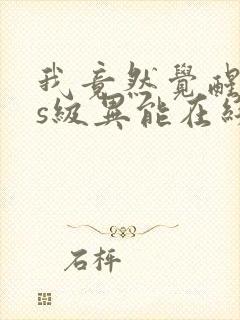 我竟然覺醒
s級異能在
石枰